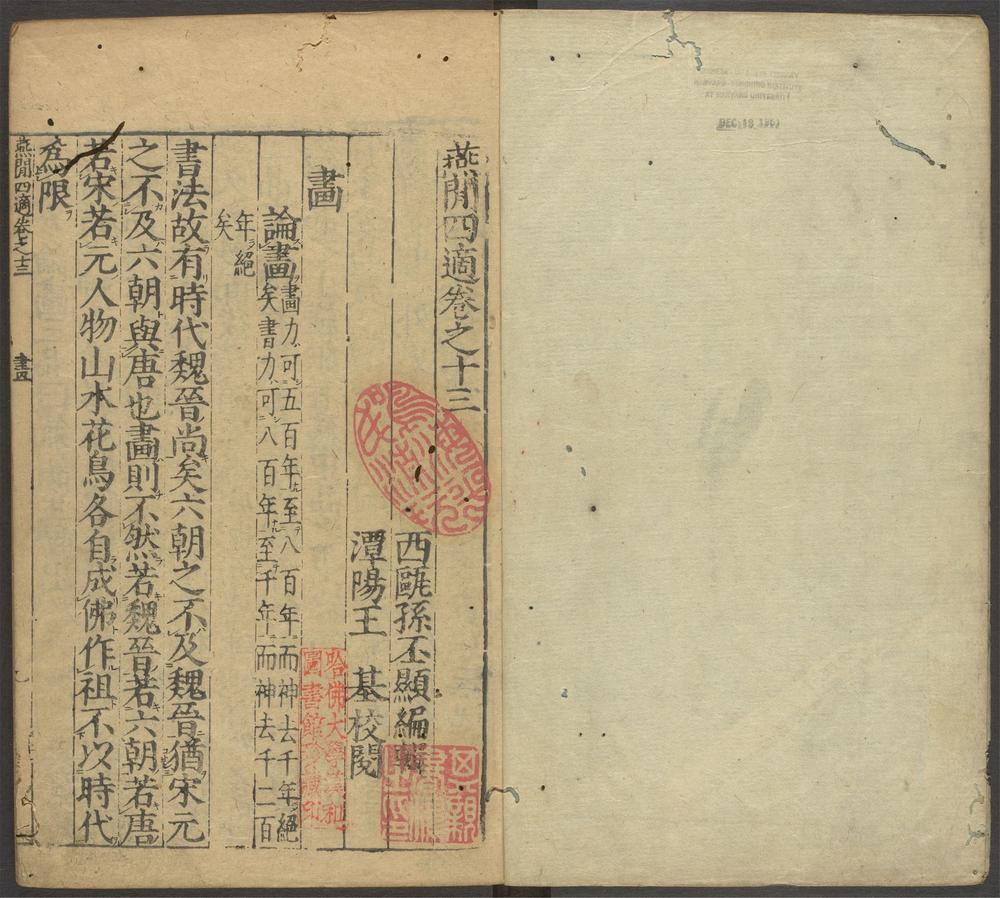 燕閒四適卷之十三
西甌孫丕顯編輯
潭陽王 基校閱
畫
論畫畫力可五百年至八百年而神去千年絕
矣書力可八百年至千年而神去千二百
年絕
矣
書法故有時代魏晉尚矣六朝之不及魏晉猶宋元
之不及六朝與唐也畫則不然若魏晉若六朝若唐
若宋若元人物山水花鳥各自成佛作祖不以時代
爲限
燕閒四適卷之十三 畫
哈佛大學
圖書館珍藏印
DEC 18 1961